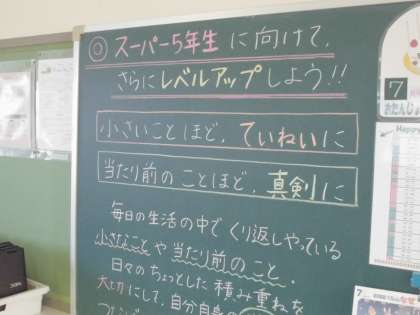 ◎スーパー5年生に向けて、
さらにレベルアップしよう!!
小さいことほど、ていねいに
当たり前のことほど、真剣に
毎日の生活の中でくり返しやっている
小さなことや当たり前のこと。
日々のちょっとした積み重ねを
大切にして、自分自身の
7
おたんじょ
Happy
7